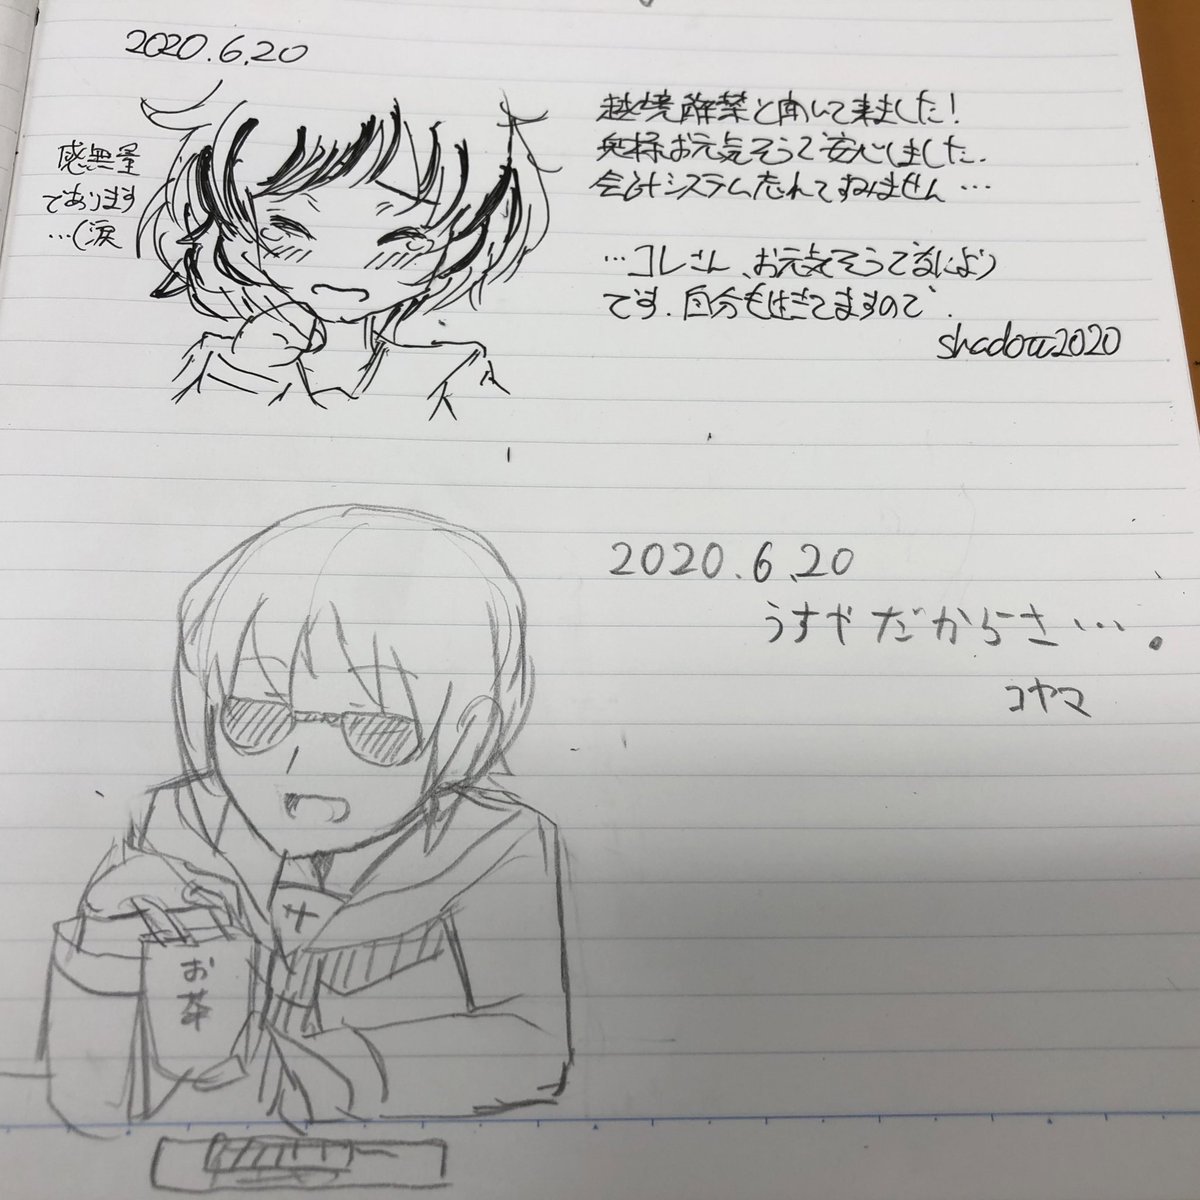 2020.6.20
感無量
であります
…(涙
越境解禁と聞いて来ました!
奥様お元気そうで安心しました.
会計システム忘れてすみません…
…コレさん、お元気そうでなにより
です.自分も生きてますので.
shadow2020
2020.6.20
うすやだからさ….
コヤマ
サ
お
茶